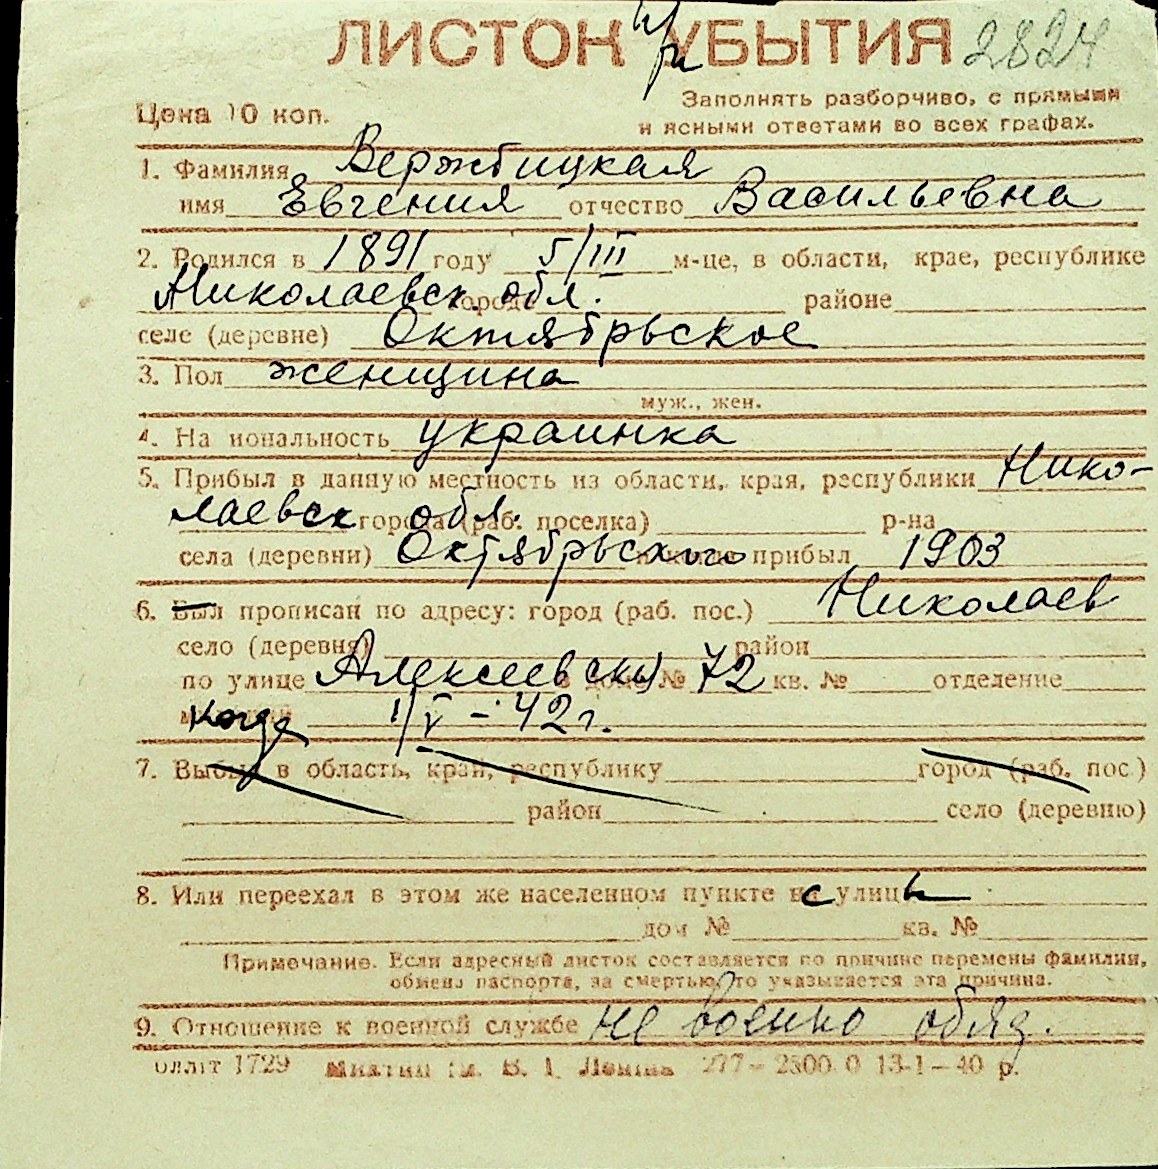 ЛИСТОК УБЫТИЯ 2824
при
Цена 10 коп. Заполнять разборчиво, с прямыми
и ясными ответами во всех графах.
1. Фамилия Вержбицкая
имя Евгения отчество Васильевна
2. Родился в 1891 году 5/III м-це, в области, крае, республике
Николаевск. обл. городе районе
селе (деревне) Октябрьское
3. Пол женщина
муж., жен.
4. На иональность украинка
5. Прибыл в данную местность из области, края, республики Нико-
лаевск обл. города (раб. поселка) р-на
села (деревни) Октябрьского прибыл 1903
6. Был прописан по адресу: город (раб. пос.) Николаев
село (деревня) район
по улице Алексеевская дом № 72 кв. № отделение
когда 1/V - 42 г.
7. Выбыл в область, край, республику город (раб. пос.)
район село (деревню)
8. Или переехал в этом же населенном пункте с улицы
дом № кв. №
Примечание. Если адресный листок составляется по причине перемены фамилии,
обмена паспорта, за смертью, то указывается эта причина.
9. Отношение к военной службе не военно обяз.
Оплліт 1729 В. І. Леніна 277 - 2500 0 13-1-40 р.